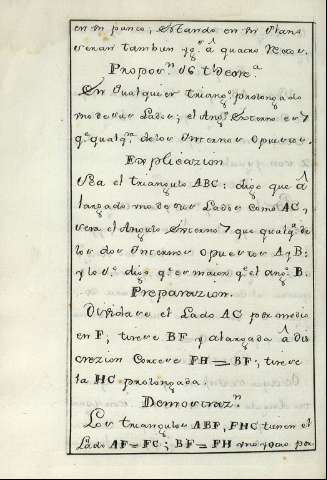 en un punto, estando en un Plano
seran tambien yg.s â quatro Rectos.
Propos.n 16 th.eore.a
En qualquier triang.o prolongado
uno de sus Lados; el Ang.o Externo es 7
q.e qualq.a delos Internos Opuestos.
Explicazion
Sea el triangulo ABC: digo que â
largado uno de sus Lados como AC,
sera el Angulo Externo 7 que qualq.a de
los dos Internos Opuestos A y B:
y lo 1.o digo q.e es maior q.e el ang.o B.
Preparazion.
Dividase el Lado AC por medio
en F, tirese BF y alargada â dis
crezion Cortese FH = BF; tirese
la HC prolongada.
Demostraz.n
Los triangulos ABF, FHC tienen el
Lado AF = FC; BF = FH por